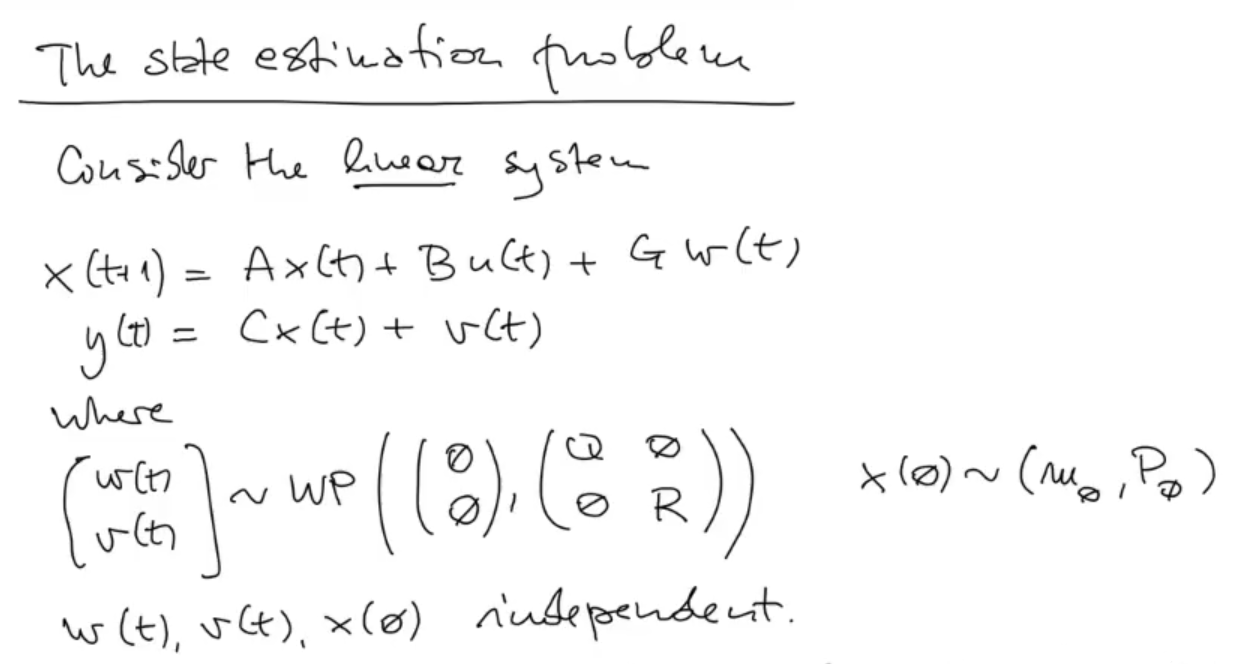 The state estimation problem
Consider the linear system
x(t+1) = Ax(t) + Bu(t) + Gw(t)
y(t) = Cx(t) + v(t)
where
(w(t) v(t)] ~ WP((∅ ∅), (Q ∅ ∅ R)) x(∅) ~ (m∅, P∅)
w(t), v(t), x(∅) independent.